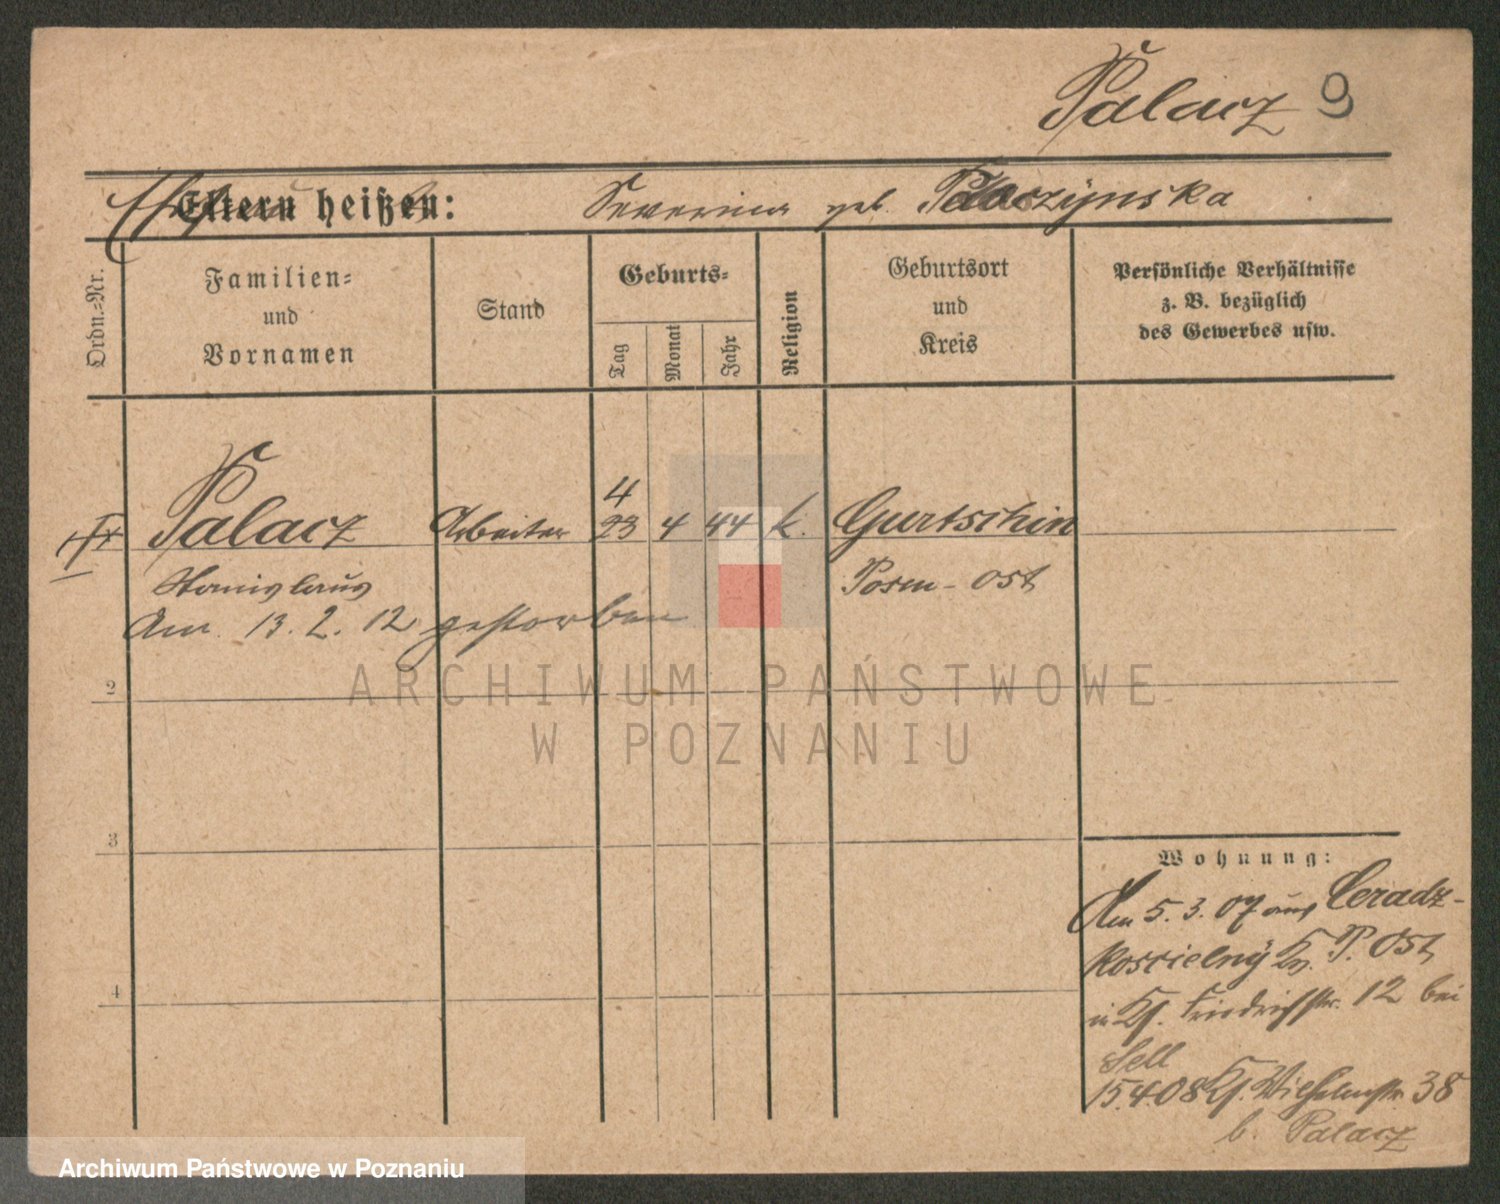 Palacz 9
Eltern heißen: Severina geb.
Ordn.-Nr.
Familien-
und
Vornamen
Stand
Geburts-
Tag
Monat
Jahr
Religion
Geburtsort
und
Kreis
Persönliche Verhältnisse
z. B. bezüglich
des Gewerbes usw.
4
Palacz Arbeiter 23 4 44 k. Gurtschin
Stanislaus Posen-Ost
Am 13.2.12 gestorben
2
3
4
Wohnung:
Am 5.3.07 aus Ceradz-
koscielny Kr. P. Ost
in Friedrichstr. 12 bei
Sell
15.4.08 Wilhelmstr. 38
b. Palacz
ARCHIWUM PAŃSTWOWE
W POZNANIU
Archiwum Państwowe w Poznaniu